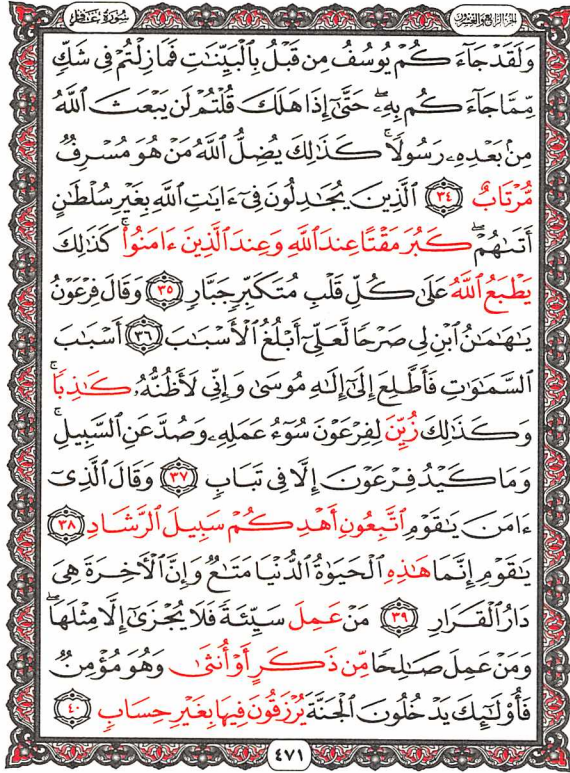 الجزء الرابع والعشرون سورة غافر
وَلَقَدْ جَآءَكُمْ يُوسُفُ مِن قَبْلُ بِٱلْبَيِّنَٰتِ فَمَا زِلْتُمْ فِى شَكٍّ
مِّمَّا جَآءَكُم بِهِۦ حَتَّىٰٓ إِذَا هَلَكَ قُلْتُمْ لَن يَبْعَثَ ٱللَّهُ
مِنۢ بَعْدِهِۦ رَسُولًا ۚ كَذَٰلِكَ يُضِلُّ ٱللَّهُ مَنْ هُوَ مُسْرِفٌ
مُّرْتَابٌ ٣٤ ٱلَّذِينَ يُجَٰدِلُونَ فِىٓ ءَايَٰتِ ٱللَّهِ بِغَيْرِ سُلْطَٰنٍ
أَتَىٰهُمْ ۖ كَبُرَ مَقْتًا عِندَ ٱللَّهِ وَعِندَ ٱلَّذِينَ ءَامَنُوا۟ ۚ كَذَٰلِكَ
يَطْبَعُ ٱللَّهُ عَلَىٰ كُلِّ قَلْبِ مُتَكَبِّرٍ جَبَّارٍ ٣٥ وَقَالَ فِرْعَوْنُ
يَٰهَٰمَٰنُ ٱبْنِ لِى صَرْحًا لَّعَلِّىٓ أَبْلُغُ ٱلْأَسْبَٰبَ ٣٦ أَسْبَٰبَ
ٱلسَّمَٰوَٰتِ فَأَطَّلِعَ إِلَىٰٓ إِلَٰهِ مُوسَىٰ وَإِنِّى لَأَظُنُّهُۥ كَٰذِبًا ۚ
وَكَذَٰلِكَ زُيِّنَ لِفِرْعَوْنَ سُوٓءُ عَمَلِهِۦ وَصُدَّ عَنِ ٱلسَّبِيلِ ۚ
وَمَا كَيْدُ فِرْعَوْنَ إِلَّا فِى تَبَابٍ ٣٧ وَقَالَ ٱلَّذِىٓ
ءَامَنَ يَٰقَوْمِ ٱتَّبِعُونِ أَهْدِكُمْ سَبِيلَ ٱلرَّشَادِ ٣٨
يَٰقَوْمِ إِنَّمَا هَٰذِهِ ٱلْحَيَوٰةُ ٱلدُّنْيَا مَتَٰعٌ وَإِنَّ ٱلْءَاخِرَةَ هِىَ
دَارُ ٱلْقَرَارِ ٣٩ مَنْ عَمِلَ سَيِّئَةً فَلَا يُجْزَىٰٓ إِلَّا مِثْلَهَا ۖ
وَمَنْ عَمِلَ صَٰلِحًا مِّن ذَكَرٍ أَوْ أُنثَىٰ وَهُوَ مُؤْمِنٌ
فَأُو۟لَٰٓئِكَ يَدْخُلُونَ ٱلْجَنَّةَ يُرْزَقُونَ فِيهَا بِغَيْرِ حِسَابٍ ٤٠
٤٧١